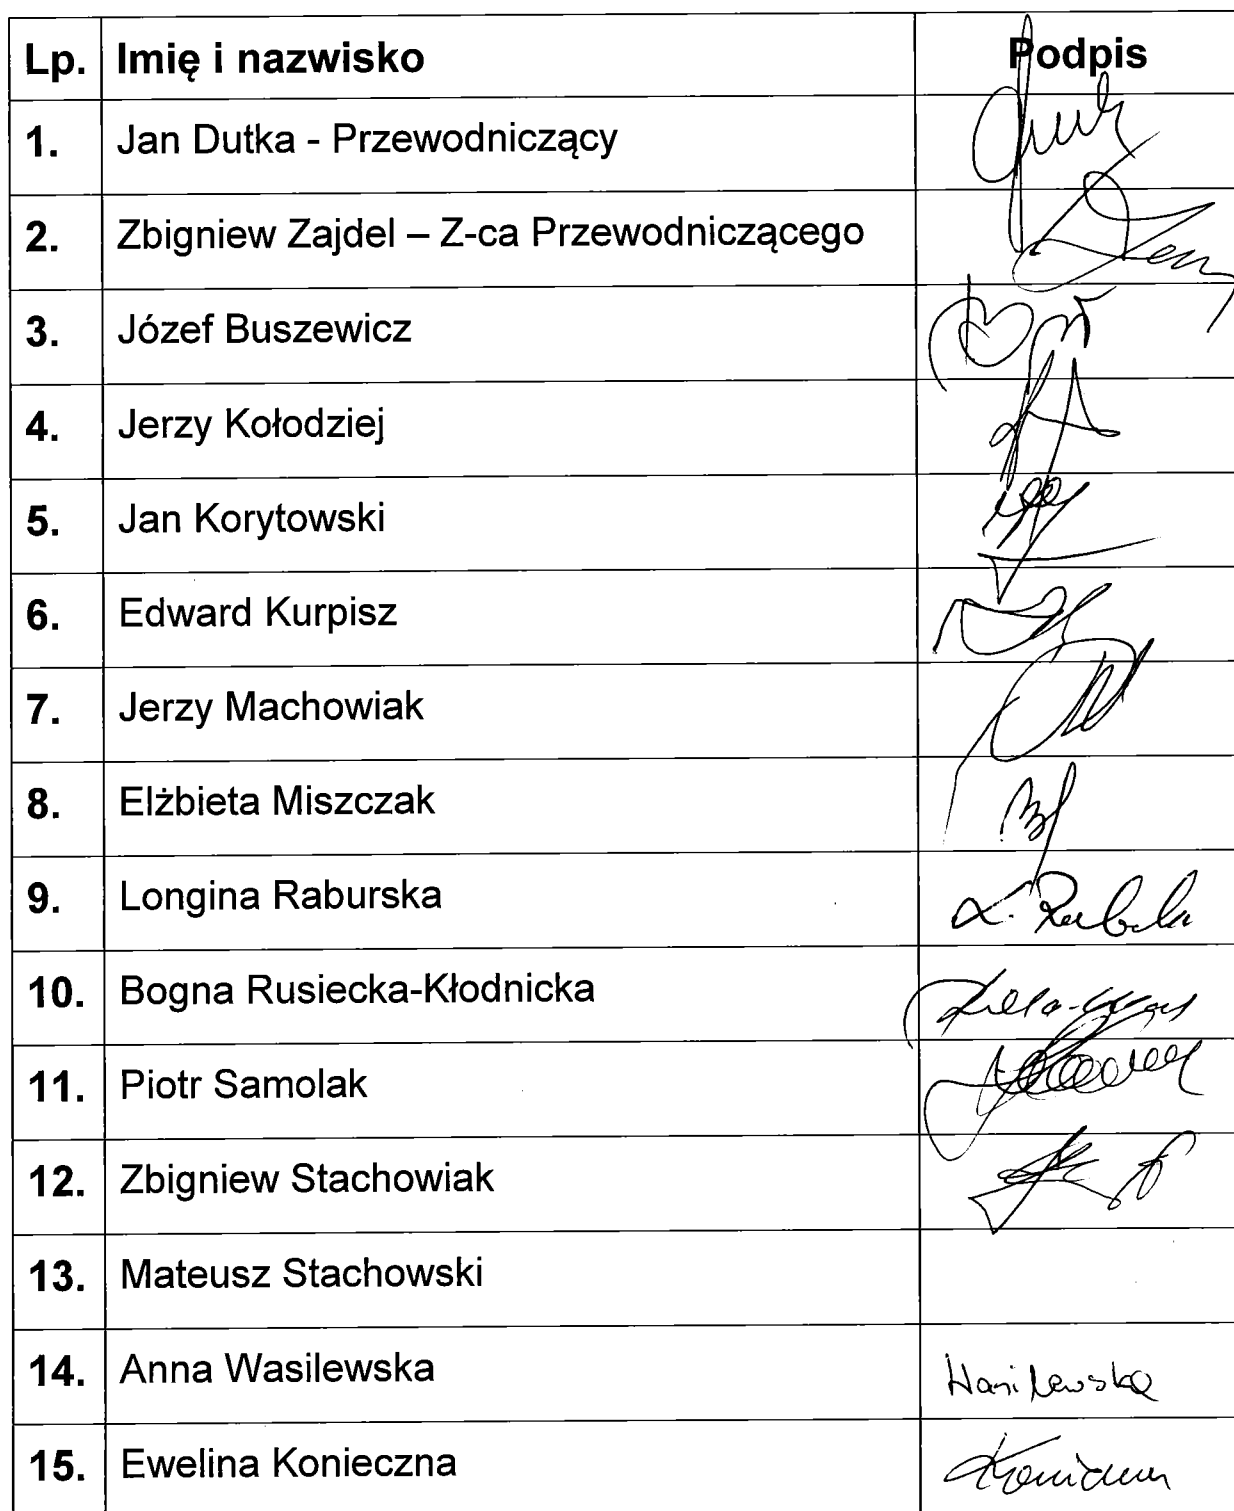 Lp. Imię i nazwisko Podpis
1. Jan Dutka - Przewodniczący
2. Zbigniew Zajdel – Z-ca Przewodniczącego
3. Józef Buszewicz
4. Jerzy Kołodziej
5. Jan Korytowski
6. Edward Kurpisz
7. Jerzy Machowiak
8. Elżbieta Miszczak
9. Longina Raburska
10. Bogna Rusiecka-Kłodnicka
11. Piotr Samolak
12. Zbigniew Stachowiak
13. Mateusz Stachowski
14. Anna Wasilewska Wasilewska
15. Ewelina Konieczna